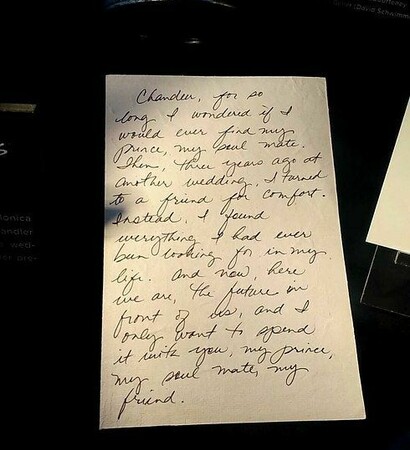 (David Schwimm
Chandler, for so
long I wondered if I
would ever find my
prince, my soul mate.
Then, three years ago at
another wedding, I turned
to a friend for comfort.
Instead, I found
everything I had ever
been looking for in my
life. And now, here
we are, the future in
front of us, and I
only want to spend
it with you, my prince,
my soul mate, my
friend.
onica
andler
wed-